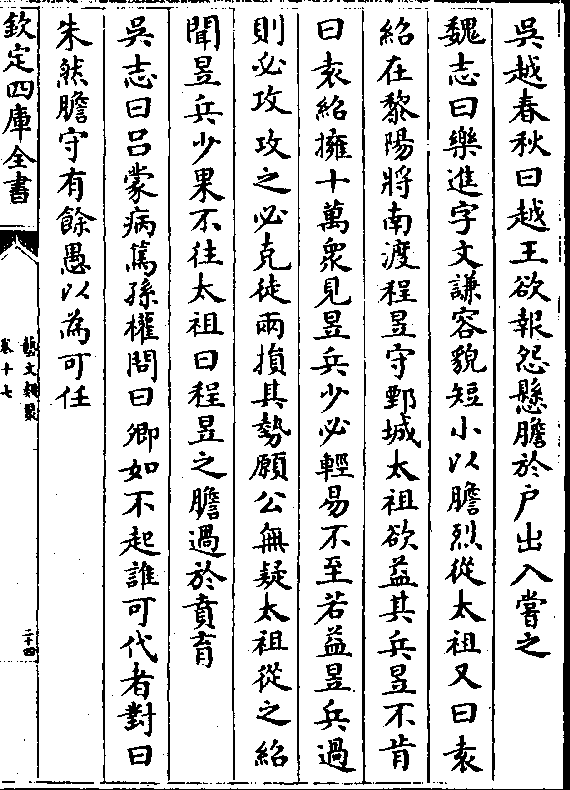 吳越春秋曰越王欲報怨懸膽於戶出入嘗之
魏志曰樂進字文謙容貌短小以膽烈從太祖又曰袁
紹在黎陽將南渡程昱守鄄城太祖欲益其兵昱不肯
曰袁紹擁十萬衆見昱兵少必輕易不至若益昱兵過
則必攻攻之必克徒兩損其勢願公無疑太祖從之紹
聞昱兵少果不往太祖曰程昱之膽過於賁育
吳志曰呂蒙病篤孫權問曰卿如不起誰可代者對曰
朱然膽守有餘愚以為可任
欽定四庫全書
藝文類聚
卷十七
二十四